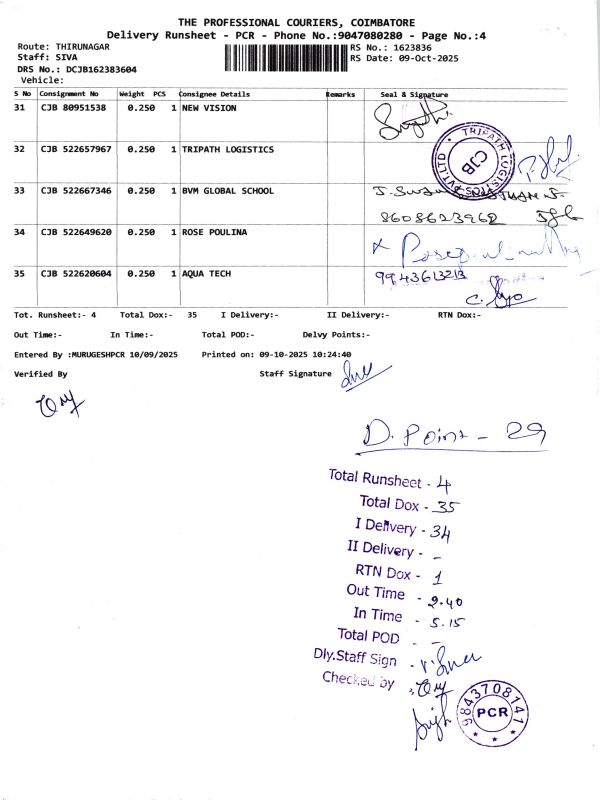 THE PROFESSIONAL COURIERS, COIMBATORE
Delivery Runsheet - PCR - Phone No.:9047080280 - Page No.:4
Route: THIRUNAGAR RS No.: 1623836
Staff: SIVA RS Date: 09-Oct-2025
DRS No.: DCJB162383604
Vehicle:
S No Consignment No Weight PCS Consignee Details Remarks Seal & Signature
31 CJB 80951538 0.250 1 NEW VISION
32 CJB 522657967 0.250 1 TRIPATH LOGISTICS
TRIPATH LOGISTICS PVT.LTD CJB
33 CJB 522667346 0.250 1 BVM GLOBAL SCHOOL
8608623962
34 CJB 522649620 0.250 1 ROSE POULINA
35 CJB 522620604 0.250 1 AQUA TECH 9943613213
Tot. Runsheet:- 4 Total Dox:- 35 I Delivery:- II Delivery:- RTN Dox:-
Out Time:- In Time:- Total POD:- Delvy Points:-
Entered By :MURUGESHPCR 10/09/2025 Printed on: 09-10-2025 10:24:40
Verified By Staff Signature
D. Point - 29
Total Runsheet - 4
Total Dox - 35
I Delivery - 34
II Delivery - -
RTN Dox - 1
Out Time - 2.40
In Time - 5.15
Total POD - -
Dly.Staff Sign -
Checked by
9843708141 PCR